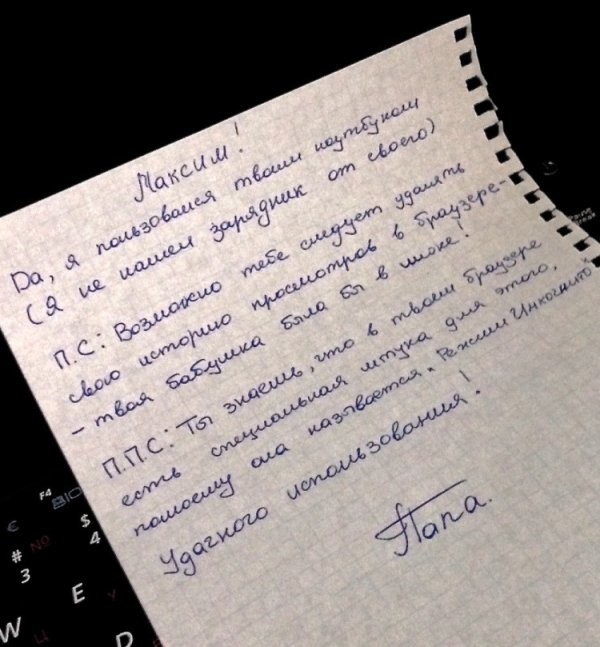 Максим!
Да, я пользовался твоим ноутбуком
(Я не нашел зарядник от своего)
П.С: Возможно тебе следует удалять
свою историю просмотров в браузере-
- твоя бабушка была бы в шоке!
П.П.С: Ты знаешь, что в твоем браузере
есть специальная штука для этого,
помоему она называется „Режим Инкогнито"
Удачного использования!
Папа.
F4
BIO
€
$
4
#
3
W
E
D